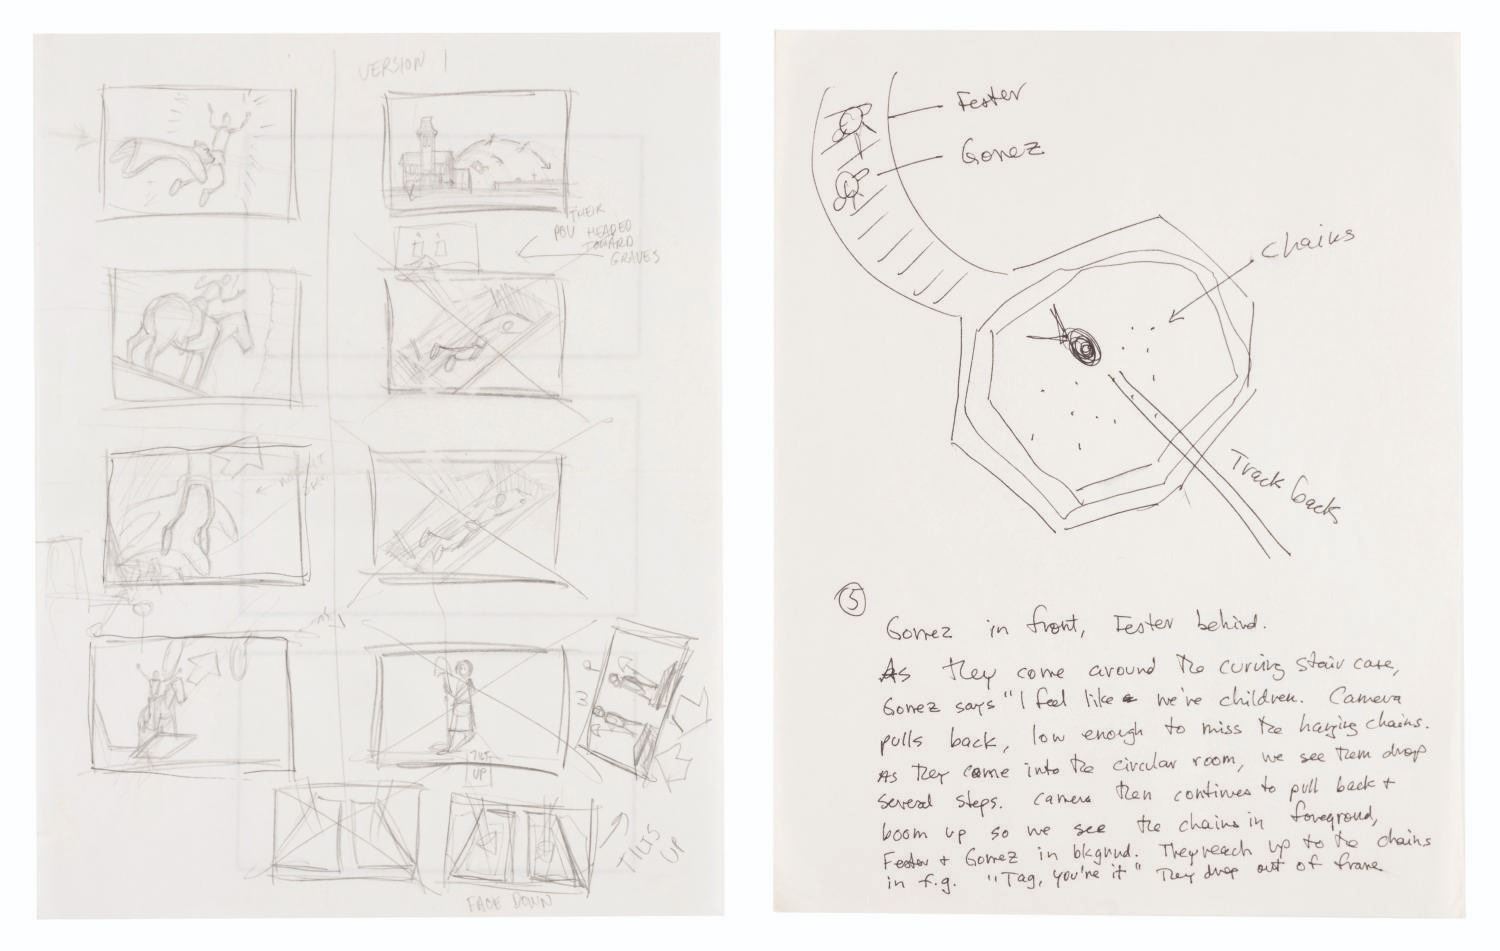 VERSION 1
THEIR
POV HEADED
TOWARD
GRAVES
3
TILT
UP
TILTS
UP
FACE DOWN
Fester
Gomez
Chains
Track back
5
Gomez in front, Fester behind.
As they come around the curving stair case,
Gomez says "I feel like we're children. Camera
pulls back, low enough to miss the hanging chains.
As they come into the circular room, we see them drop
several steps. Camera then continues to pull back +
boom up so we see the chains in foreground,
Fester + Gomez in bkgrnd. They reach up to the chains
in f.g. "Tag, you're it" They drop out of frame